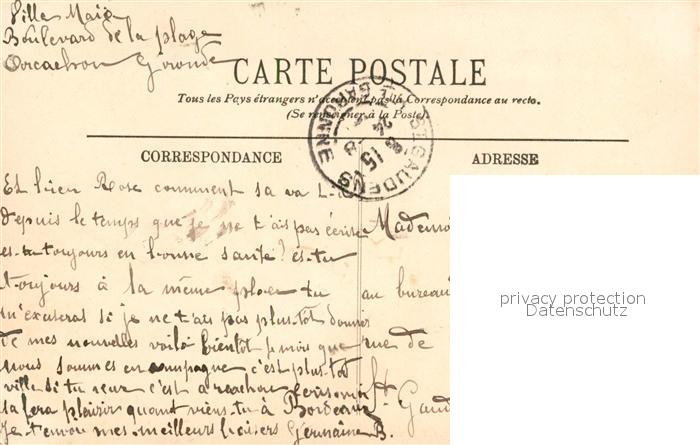 Villa Maia
Boulevard de la plage
Arcachon Gironde
CARTE POSTALE
Tous les Pays étrangers n'acceptent pas la Correspondance au recto.
(Se renseigner à la Poste).
ST GAUDENS
HTE GARONNE
CORRESPONDANCE
ADRESSE
Et bien Rose comment sa va t-il
depuis le temps que je ne t'ais pas écrise
es-tu toujours en bonne santé? es-tu
toujours à la même place tu
m'excuseras si je ne t'ais pas plustôt donner
de mes nouvelles voilà bientôt mois que
nous sommes en campagne c'est plus tot
ville si tu veux c'est arcachon
sa fera plaisir quant viens-tu à Bordeaux
Je t'envoie mes meilleurs baisers Germaine B.
Mademoi
au bureau
rue de
St Gaud
privacy protection
Datenschutz